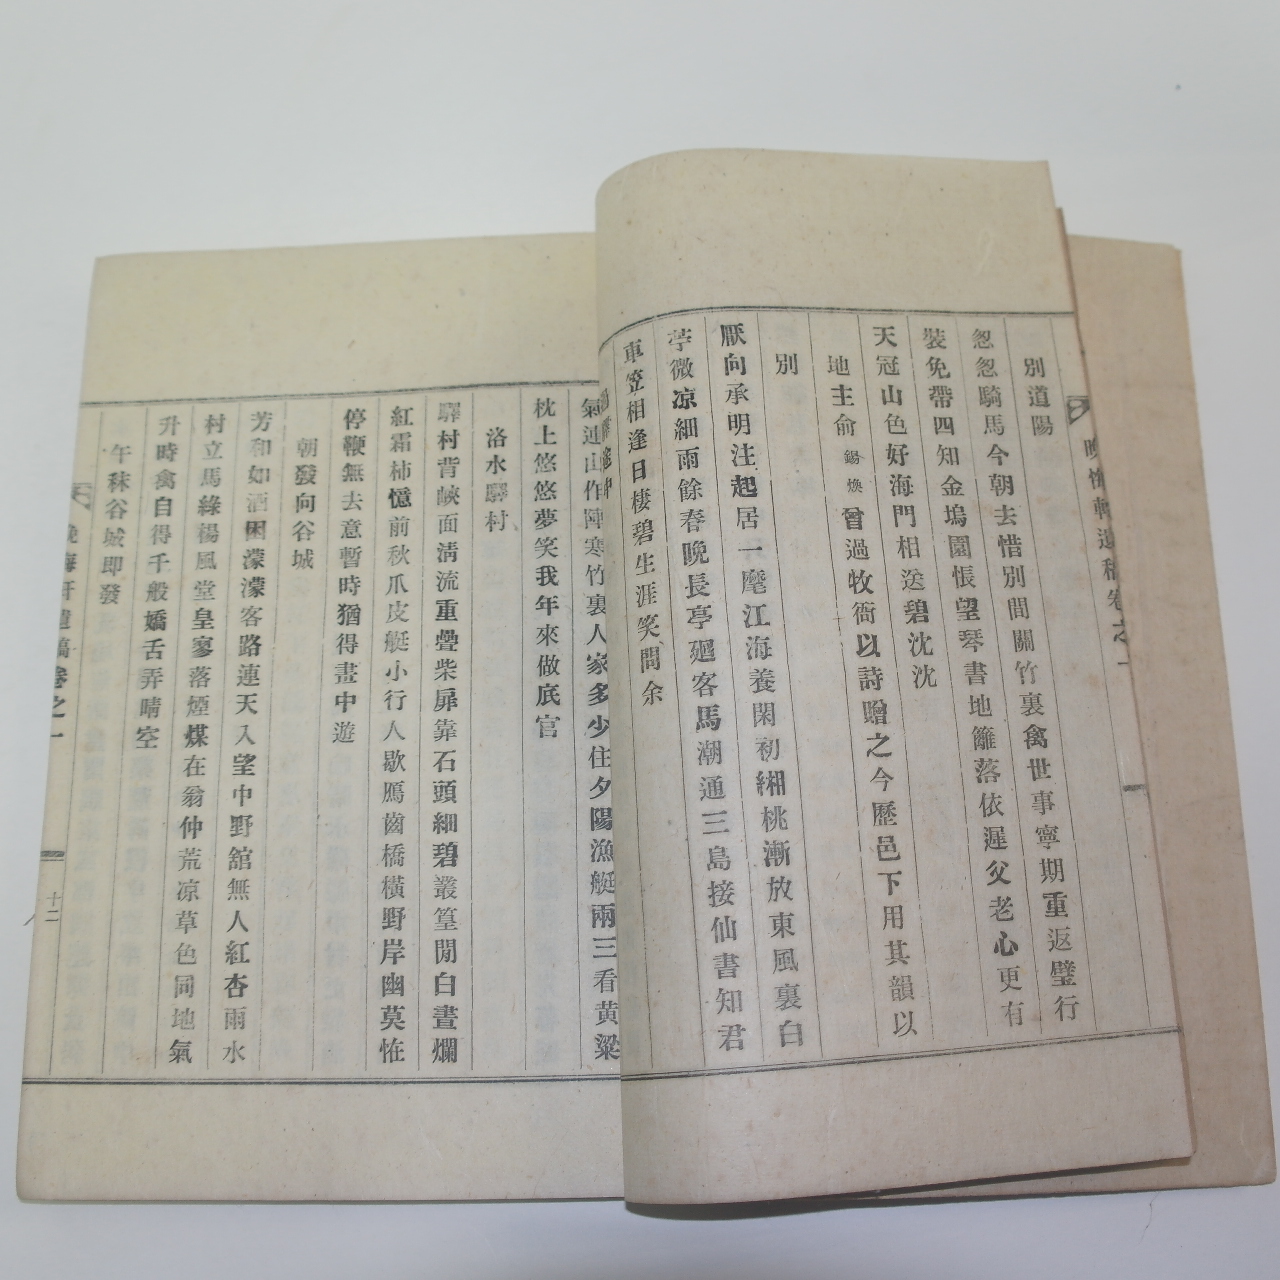 晚悔軒遺稿卷之一
別道陽
怱怱騎馬今朝去惜別間關竹裏禽世事寧期重返璧行
裝免帶四知金塢園悵望琴書地籬落依遲父老心更有
天冠山色好海門相送碧沈沈
地主俞錫煥曾過牧衙以詩贈之今歷邑下用其韻以
別
厭向承明注起居一麾江海養閑初緗桃漸放東風裏白
苧微凉細雨餘春晚長亭廻客馬潮通三島接仙書知君
車笠相逢日棲碧生涯笑問余
氣連山作陣寒竹裏人家多少住夕陽漁艇兩三看黄粱
枕上悠悠夢笑我年來做底官
洛水驛村
驛村背峽面淸流重疊柴扉靠石頭細碧叢篁閒白晝爛
紅霜柿憶前秋爪皮艇小行人歇鴈齒橋橫野岸幽莫恠
停鞭無去意暫時猶得畫中遊
朝發向谷城
芳和如酒困濛濛客路連天入望中野舘無人紅杏雨水
村立馬綠楊風堂皇寥落煙煤在翁仲荒凉草色同地氣
升時禽自得千般嬌舌弄晴空
午秣谷城即發
晚悔軒遺稿卷之一
十二